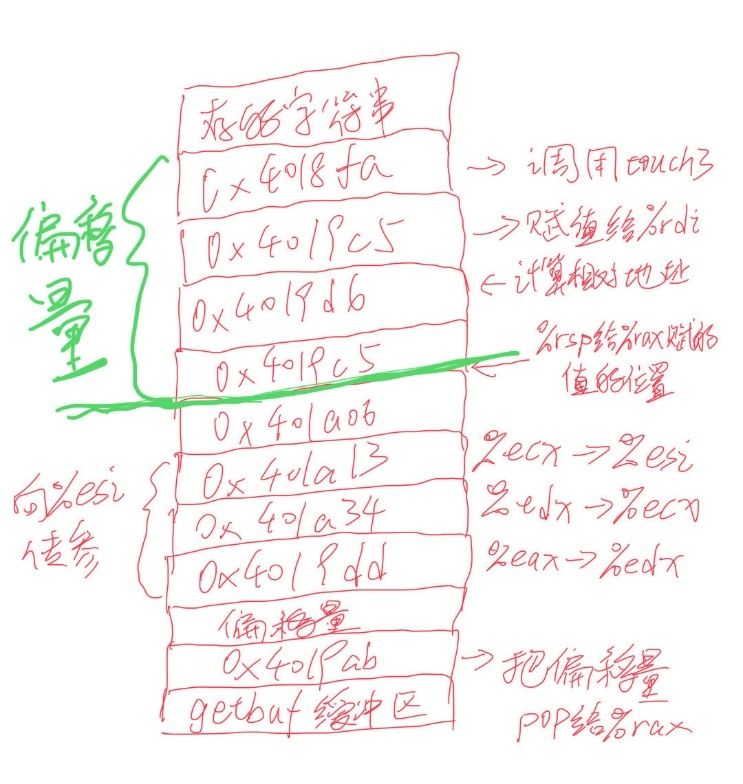 存的字符串
0x4018fa
→ 调用touch3
偏移
量
0x4019c5
→ 赋值给%rdi
0x4019db
← 计算相对地址
0x4019c5
%rsp给%rax赋的
值的位置
0x401a06
0x401a13
%ecx → %esi
向%esi
传参
0x401a34
%edx → %ecx
0x4019dd
%eax → %edx
偏移量
0x4019ab
→ 把偏移量
pop给%rax
getbuf 缓冲区